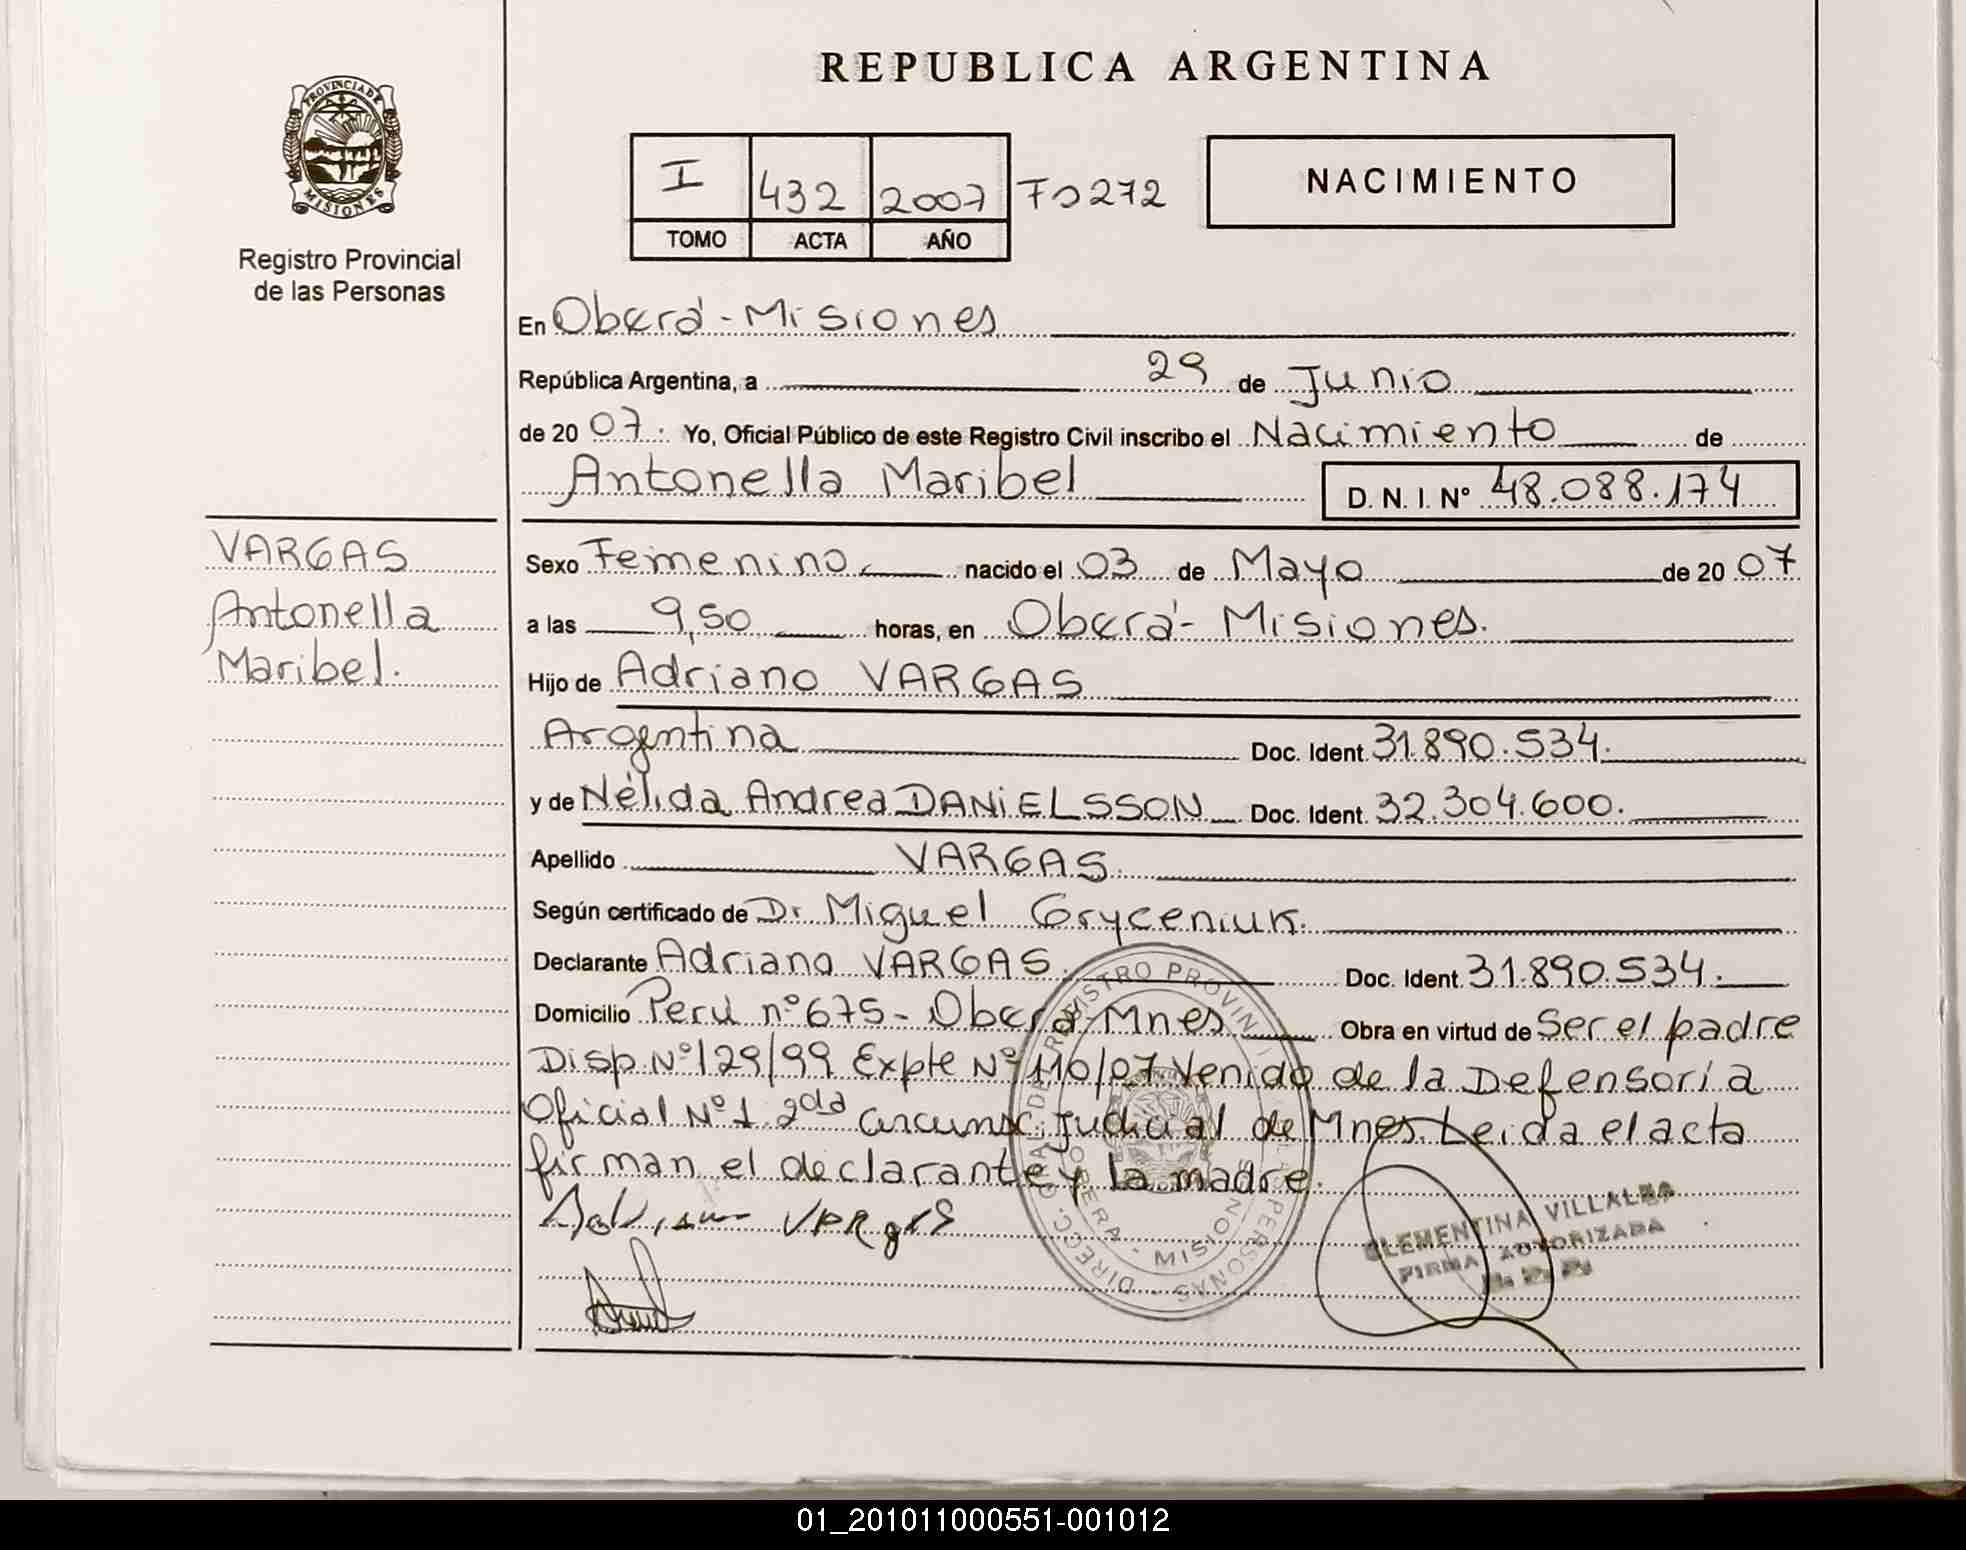 REPUBLICA ARGENTINA
PROVINCIA DE
MISIONES
Registro Provincial
de las Personas
I 432 2007 Fo 272
TOMO ACTA AÑO
NACIMIENTO
En Oberá - Misiones
República Argentina, a 29 de Junio
de 20 07. Yo, Oficial Público de este Registro Civil inscribo el Nacimiento de
Antonella Maribel D. N. I. N° 48.088.174
VARGAS
Antonella
Maribel.
Sexo Femenino nacido el 03 de Mayo de 20 07
a las 9,50 horas, en Oberá - Misiones.
Hijo de Adriano VARGAS
Argentina Doc. Ident. 31.890.534.
y de Nélida Andrea DANIELSSON Doc. Ident. 32.304.600.
Apellido VARGAS.
Según certificado de Dr Miguel Gryceniuk.
Declarante Adriano VARGAS. Doc. Ident. 31.890.534.
Domicilio Perú n° 675 - Oberá Mnes Obra en virtud de Ser el padre
Disp. N° 129/99 Expte N° 110/07 Venido de la Defensoría
Oficial N° 1 2da Circunsc. Judicial de Mnes. Leida el acta
firman el declarante y la madre.
VARgAS
DIRECC. GRAL. DE REGISTRO PROVINCIAL DE LAS PERSONAS
OBERA - MISIONES
CLEMENTINA VILLALBA
FIRMA AUTORIZADA
01_201011000551-001012